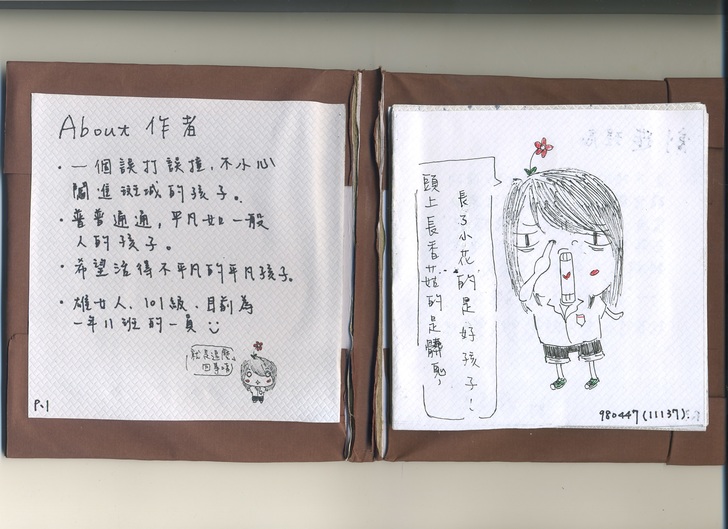 About 作者
・一個誤打誤撞,不小心
闖進斑城的孩子。
・普普通通,平凡如一般
人的孩子。
・希望活得不平凡的平凡孩子。
・雄女人、101級、目前為
一年11班的一員
就是這麼
回事咯
P.1
長了小花的是好孩子!
頭上長香菇的是髒鬼,
980447(11137).